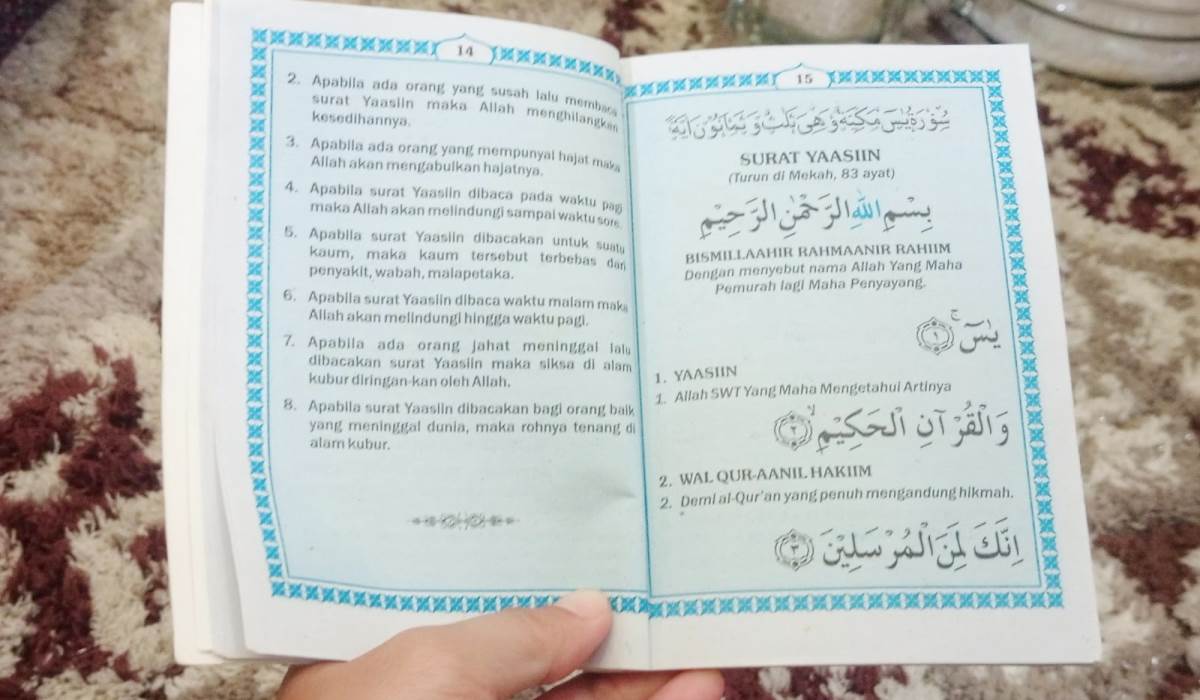 14
2. Apabila ada orang yang susah lalu membaca
surat Yaasiin maka Allah menghilangkan
kesedihannya.
3. Apabila ada orang yang mempunyai hajat maka
Allah akan mengabulkan hajatnya.
4. Apabila surat Yaasiin dibaca pada waktu pagi
maka Allah akan melindungi sampai waktu sore.
5. Apabila surat Yaasiin dibacakan untuk suatu
kaum, maka kaum tersebut terbebas dari
penyakit, wabah, malapetaka.
6. Apabila surat Yaasiin dibaca waktu malam maka
Allah akan melindungi hingga waktu pagi.
7. Apabila ada orang jahat meninggal lalu
dibacakan surat Yaasiin maka siksa di alam
kubur diringan-kan oleh Allah.
8. Apabila surat Yaasiin dibacakan bagi orang baik
yang meninggal dunia, maka rohnya tenang di
alam kubur.
15
سُوْرَةُ يٰسۤ مَكِّيَّةٌ وَهِيَ ثَلٰثٌ وَثَمَانُوْنَ اٰيَةً
SURAT YAASIIN
(Turun di Mekah, 83 ayat)
بِسْمِ اللهِ الرَّحْمٰنِ الرَّحِيْمِ
BISMILLAAHIR RAHMAANIR RAHIIM
Dengan menyebut nama Allah Yang Maha
Pemurah lagi Maha Penyayang.
يٰسۤ ۚ ﴿١﴾
1. YAASIIN
1. Allah SWT Yang Maha Mengetahui Artinya
وَالْقُرْآنِ الْحَكِيْمِ ۙ ﴿٢﴾
2. WAL QUR-AANIL HAKIIM
2. Demi al-Qur'an yang penuh mengandung hikmah.
اِنَّكَ لَمِنَ الْمُرْسَلِيْنَ ﴿٣﴾